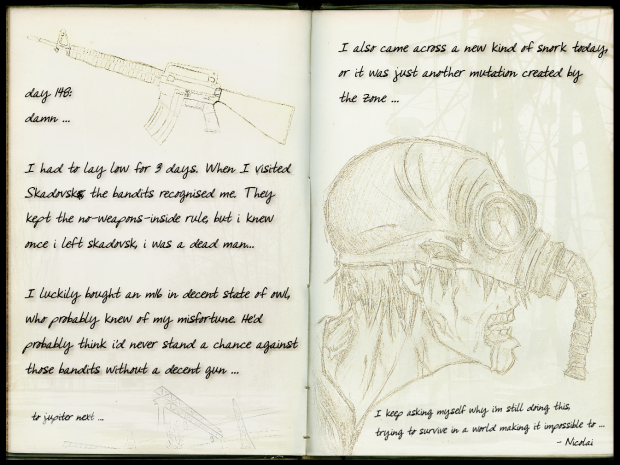 day 148:
damn ...
I had to lay low for 3 days. When I visited
Skadovsk, the bandits recognised me. They
kept the no-weapons-inside rule, but i knew
once i left skadovsk, i was a dead man...
I luckily bought an m16 in decent state of owl,
who probably knew of my misfortune. He'd
probably think i'd never stand a chance against
those bandits without a decent gun ...
to jupiter next ...
I also came across a new kind of snork today,
or it was just another mutation created by
the Zone ...
I keep asking myself why i'm still doing this,
trying to survive in a world making it impossible to ...
- Nicolai